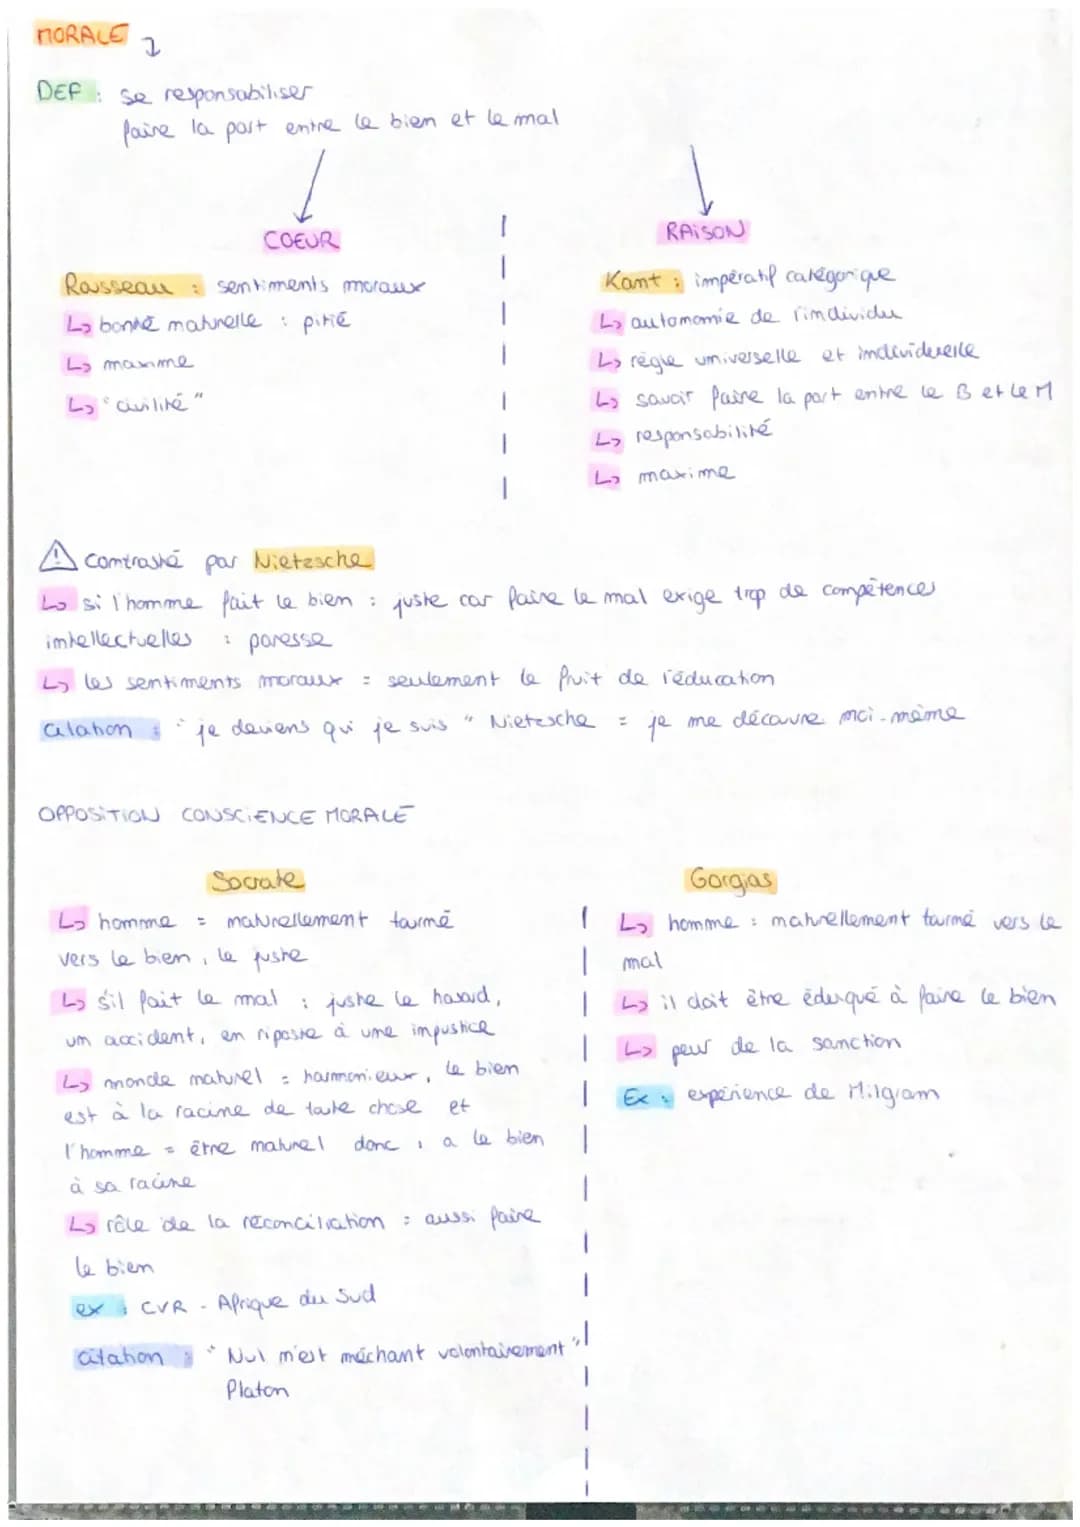 MORALE
DEF : se responsabiliser
faire la part entre le bien et le mal
COEUR
Rousseau : sentiments moraux
↳ bonté naturelle : pitié
↳ maxime
↳ "civilité"
RAISON
Kant : impératif catégorique
↳ autonomie de l'individu
↳ règle universelle et individuelle
↳ savoir faire la part entre le B et le M
↳ responsabilité
↳ maxime
⚠ Contrasté par Nietzsche
↳ si l'homme fait le bien : juste car faire le mal exige trop de compétences
intellectuelles : paresse
↳ les sentiments moraux = seulement le fruit de l'éducation
citation : "je deviens qui je suis" Nietzsche = je me découvre moi-même
OPPOSITION CONSCIENCE MORALE
Socrate
↳ homme = naturellement tourné
vers le bien, le juste
↳ s'il fait le mal : juste le hasard,
un accident, en riposte à une injustice
↳ monde naturel = harmonieux, le bien
est à la racine de toute chose et
l'homme = être naturel donc, a le bien
à sa racine
↳ rôle de la réconciliation : aussi faire
le bien
ex : CVR - Afrique du Sud
citation : "Nul n'est méchant volontairement"
Platon
Gorgias
↳ homme : naturellement tourné vers le
mal
↳ il doit être éduqué à faire le bien
↳ peur de la sanction
Ex : expérience de Milgram